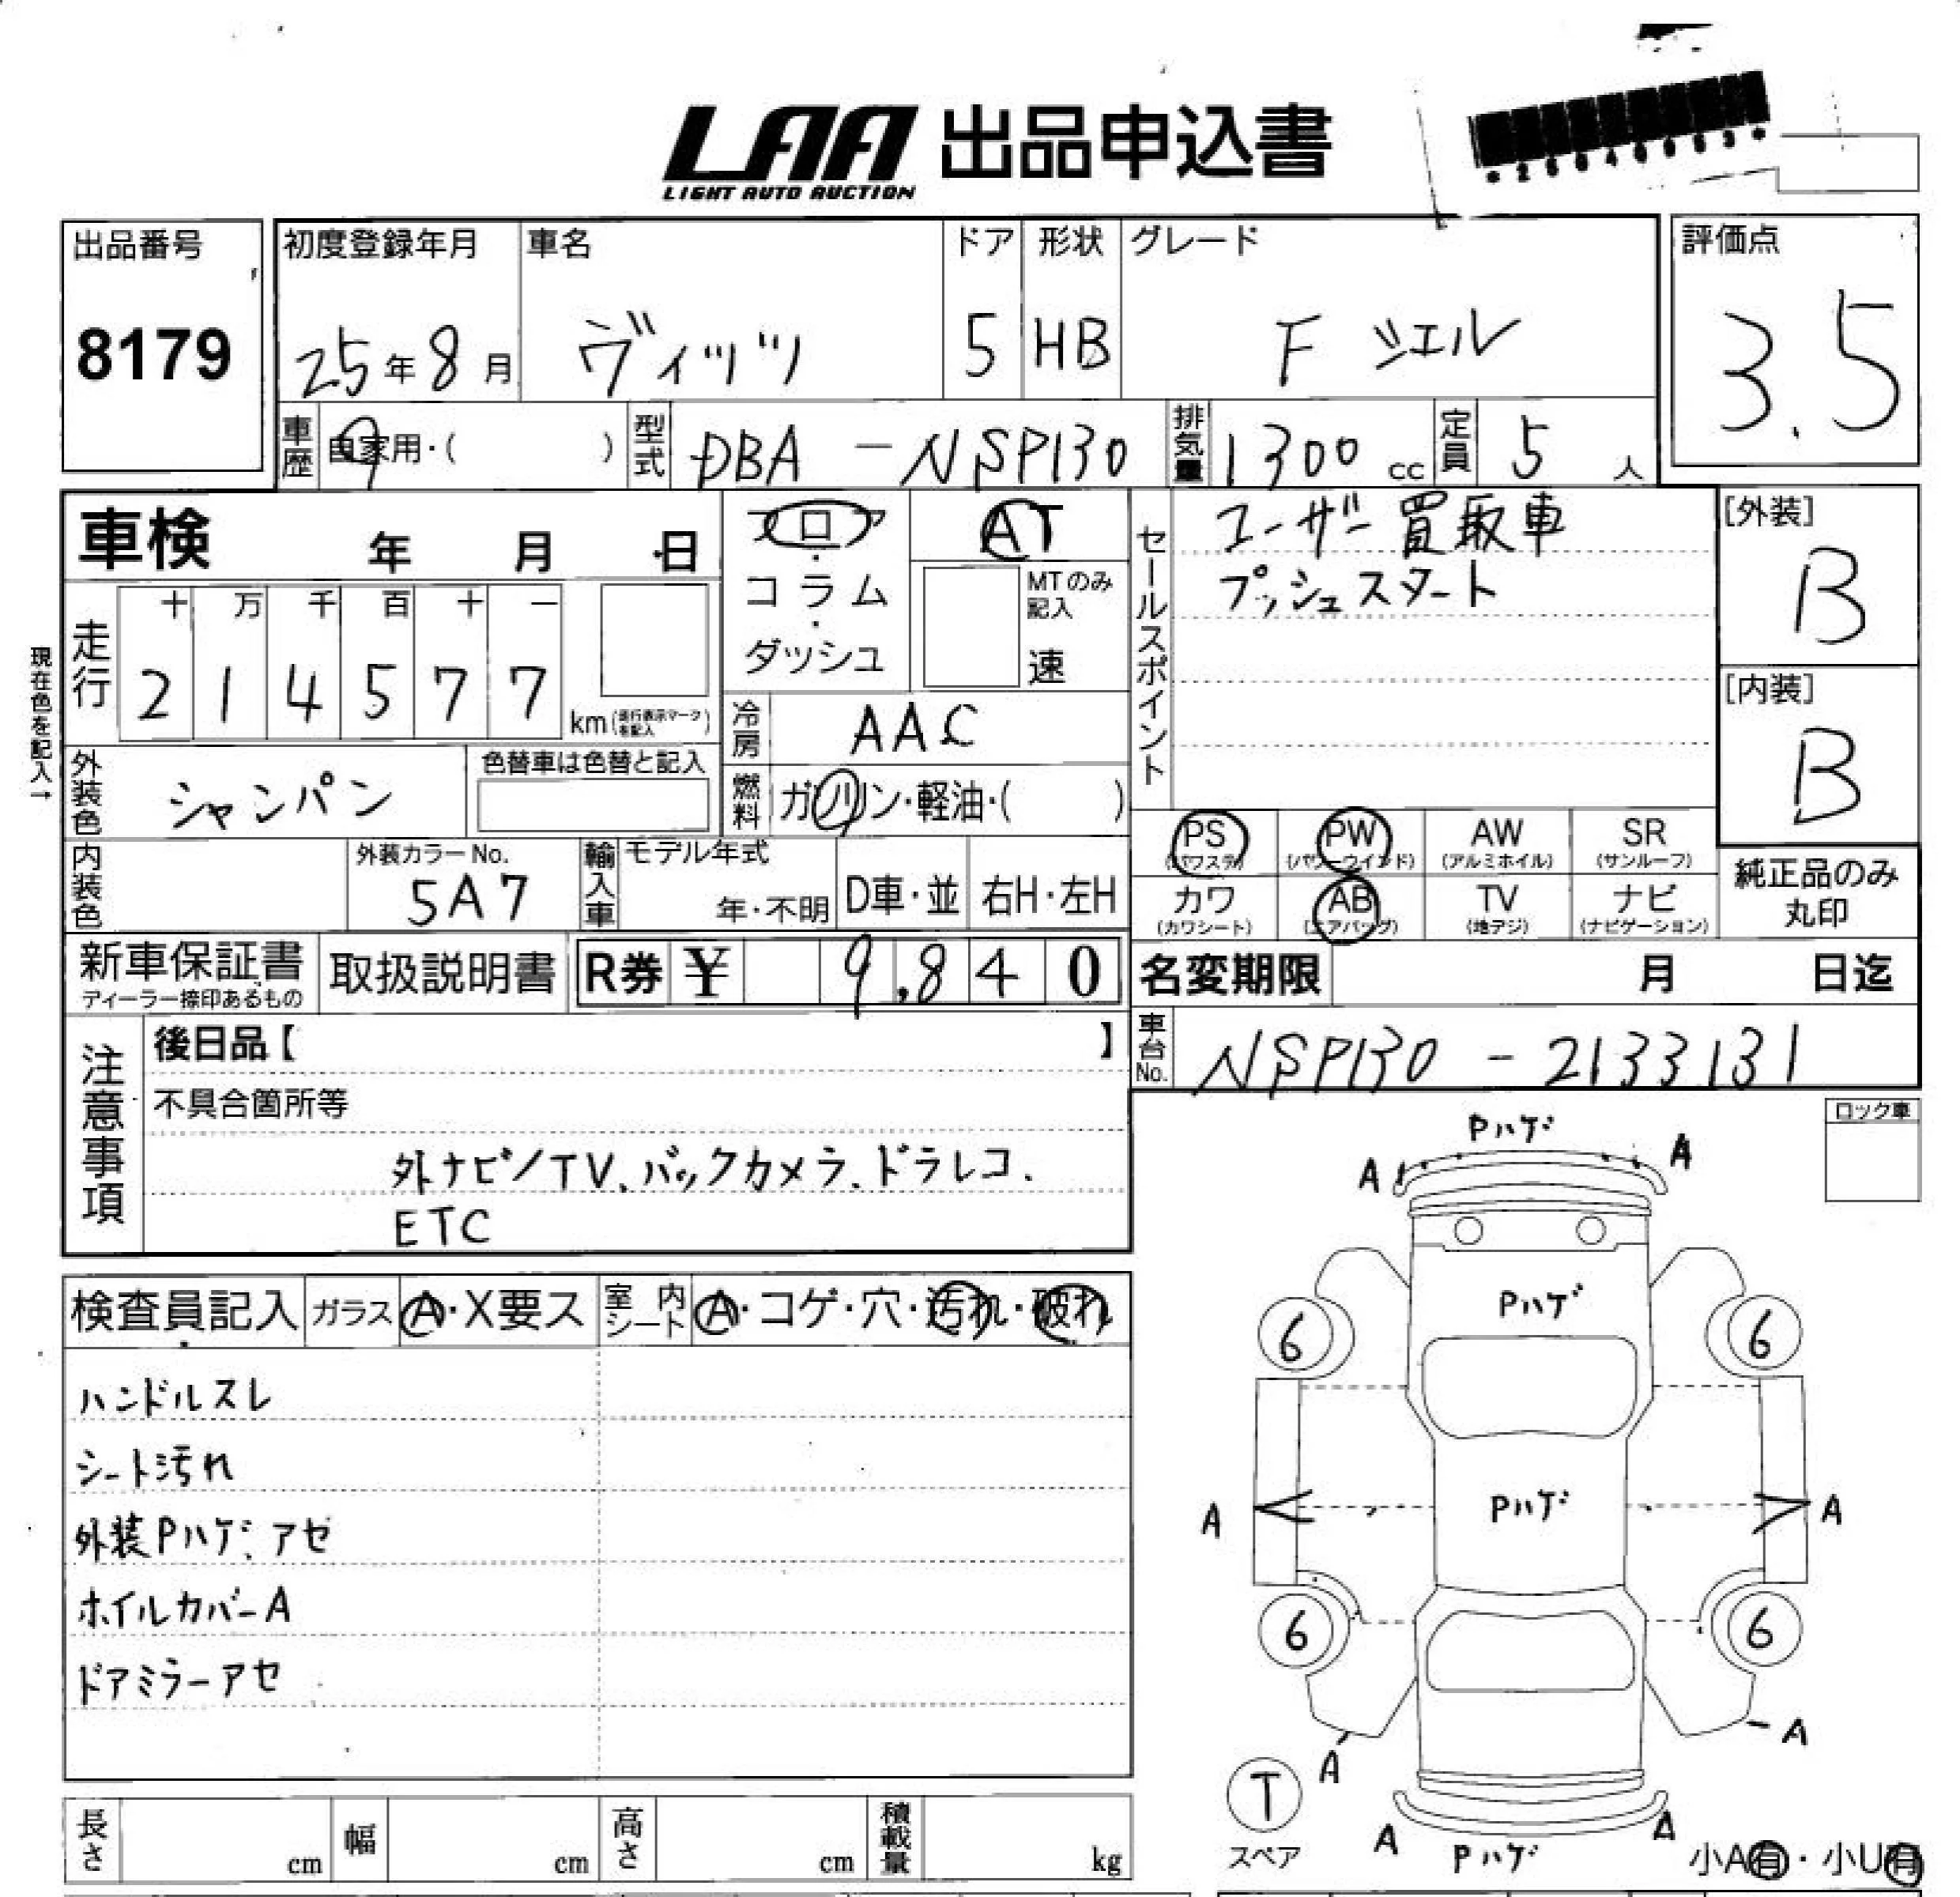 LAA 出品申込書
LIGHT AUTO AUCTION
出品番号
8179
初度登録年月
25年8月
車名
ヴィッツ
ドア
5
形状
HB
グレード
F ジエル
評価点
3.5
車歴 自家用・( )
型式 DBA-NSP130
排気量 1300 cc
定員 5 人
車検 年 月 日
フロア
・
コラム
・
ダッシュ
AT
MTのみ
記入
速
セールスポイント
ユーザー買取車
プッシュスタート
[外装]
B
[内装]
B
現在色を記入→
走行
十 万 千 百 十 一
2 1 4 5 7 7
km(走行表示マークを記入)
冷房 AAC
外装色 シャンパン
色替車は色替と記入
燃料 ガソリン・軽油・( )
PS (パワステ)
PW (パワーウインド)
AW (アルミホイル)
SR (サンルーフ)
カワ (カワシート)
AB (エアバッグ)
TV (地デジ)
ナビ (ナビゲーション)
純正品のみ
丸印
内装色
外装カラーNo.
5A7
輸入車
モデル年式
年・不明
D車・並
右H・左H
新車保証書
ディーラー捺印あるもの
取扱説明書
R券 ¥ 9,840
名変期限 月 日迄
車台No. NSP130-2133131
注意事項
後日品【 】
不具合箇所等
外ナビ/TV、バックカメラ、ドラレコ、
ETC
ロック車
検査員記入
ガラス A・X要ス
室内シート A・コゲ・穴・汚れ・破れ
ハンドルスレ
シート汚れ
外装Pハゲ、アセ
ホイルカバーA
ドアミラーアセ
Pハゲ
A
A
Pハゲ
6
6
Pハゲ
A
A
6
6
A
A
T
スペア
A
Pハゲ
A
小A有・小U有
長さ cm
幅 cm
高さ cm
積載量 kg